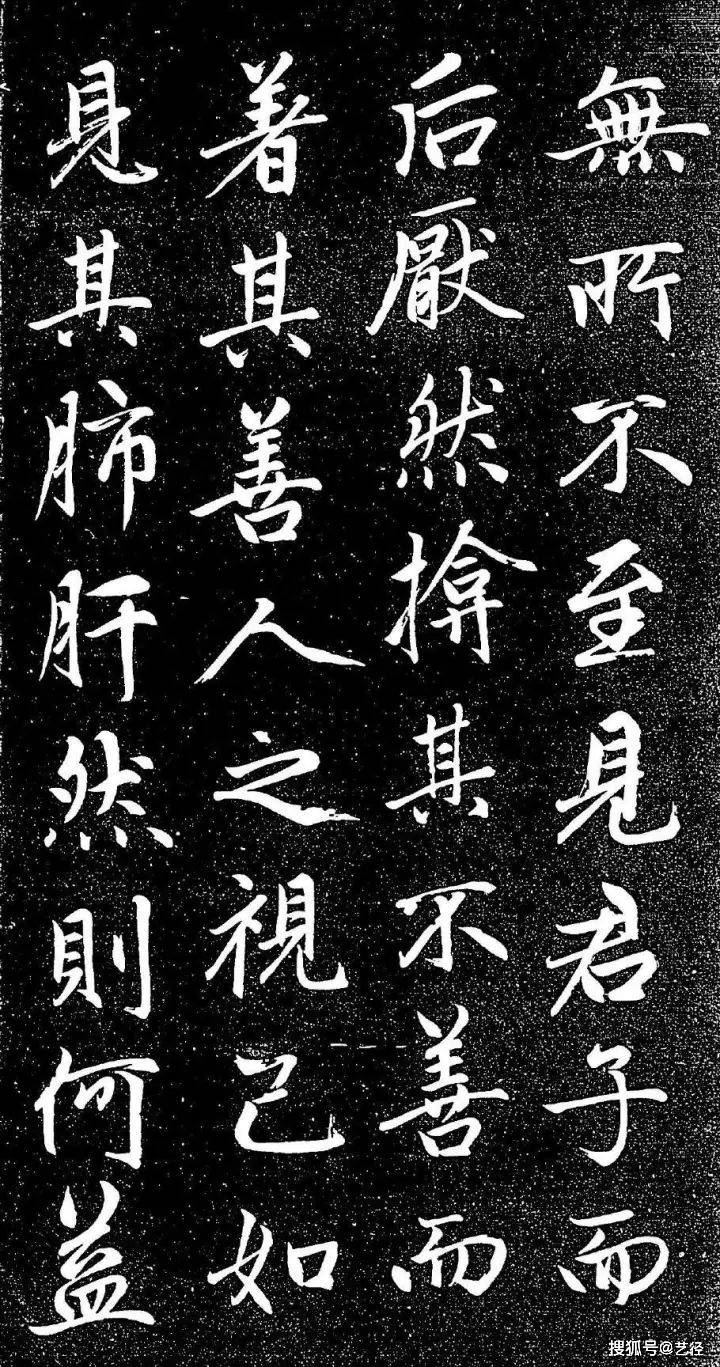 無所不至見君子而
后厭然揜其不善而
著其善人之視己如
見其肺肝然則何益
搜狐号@艺径